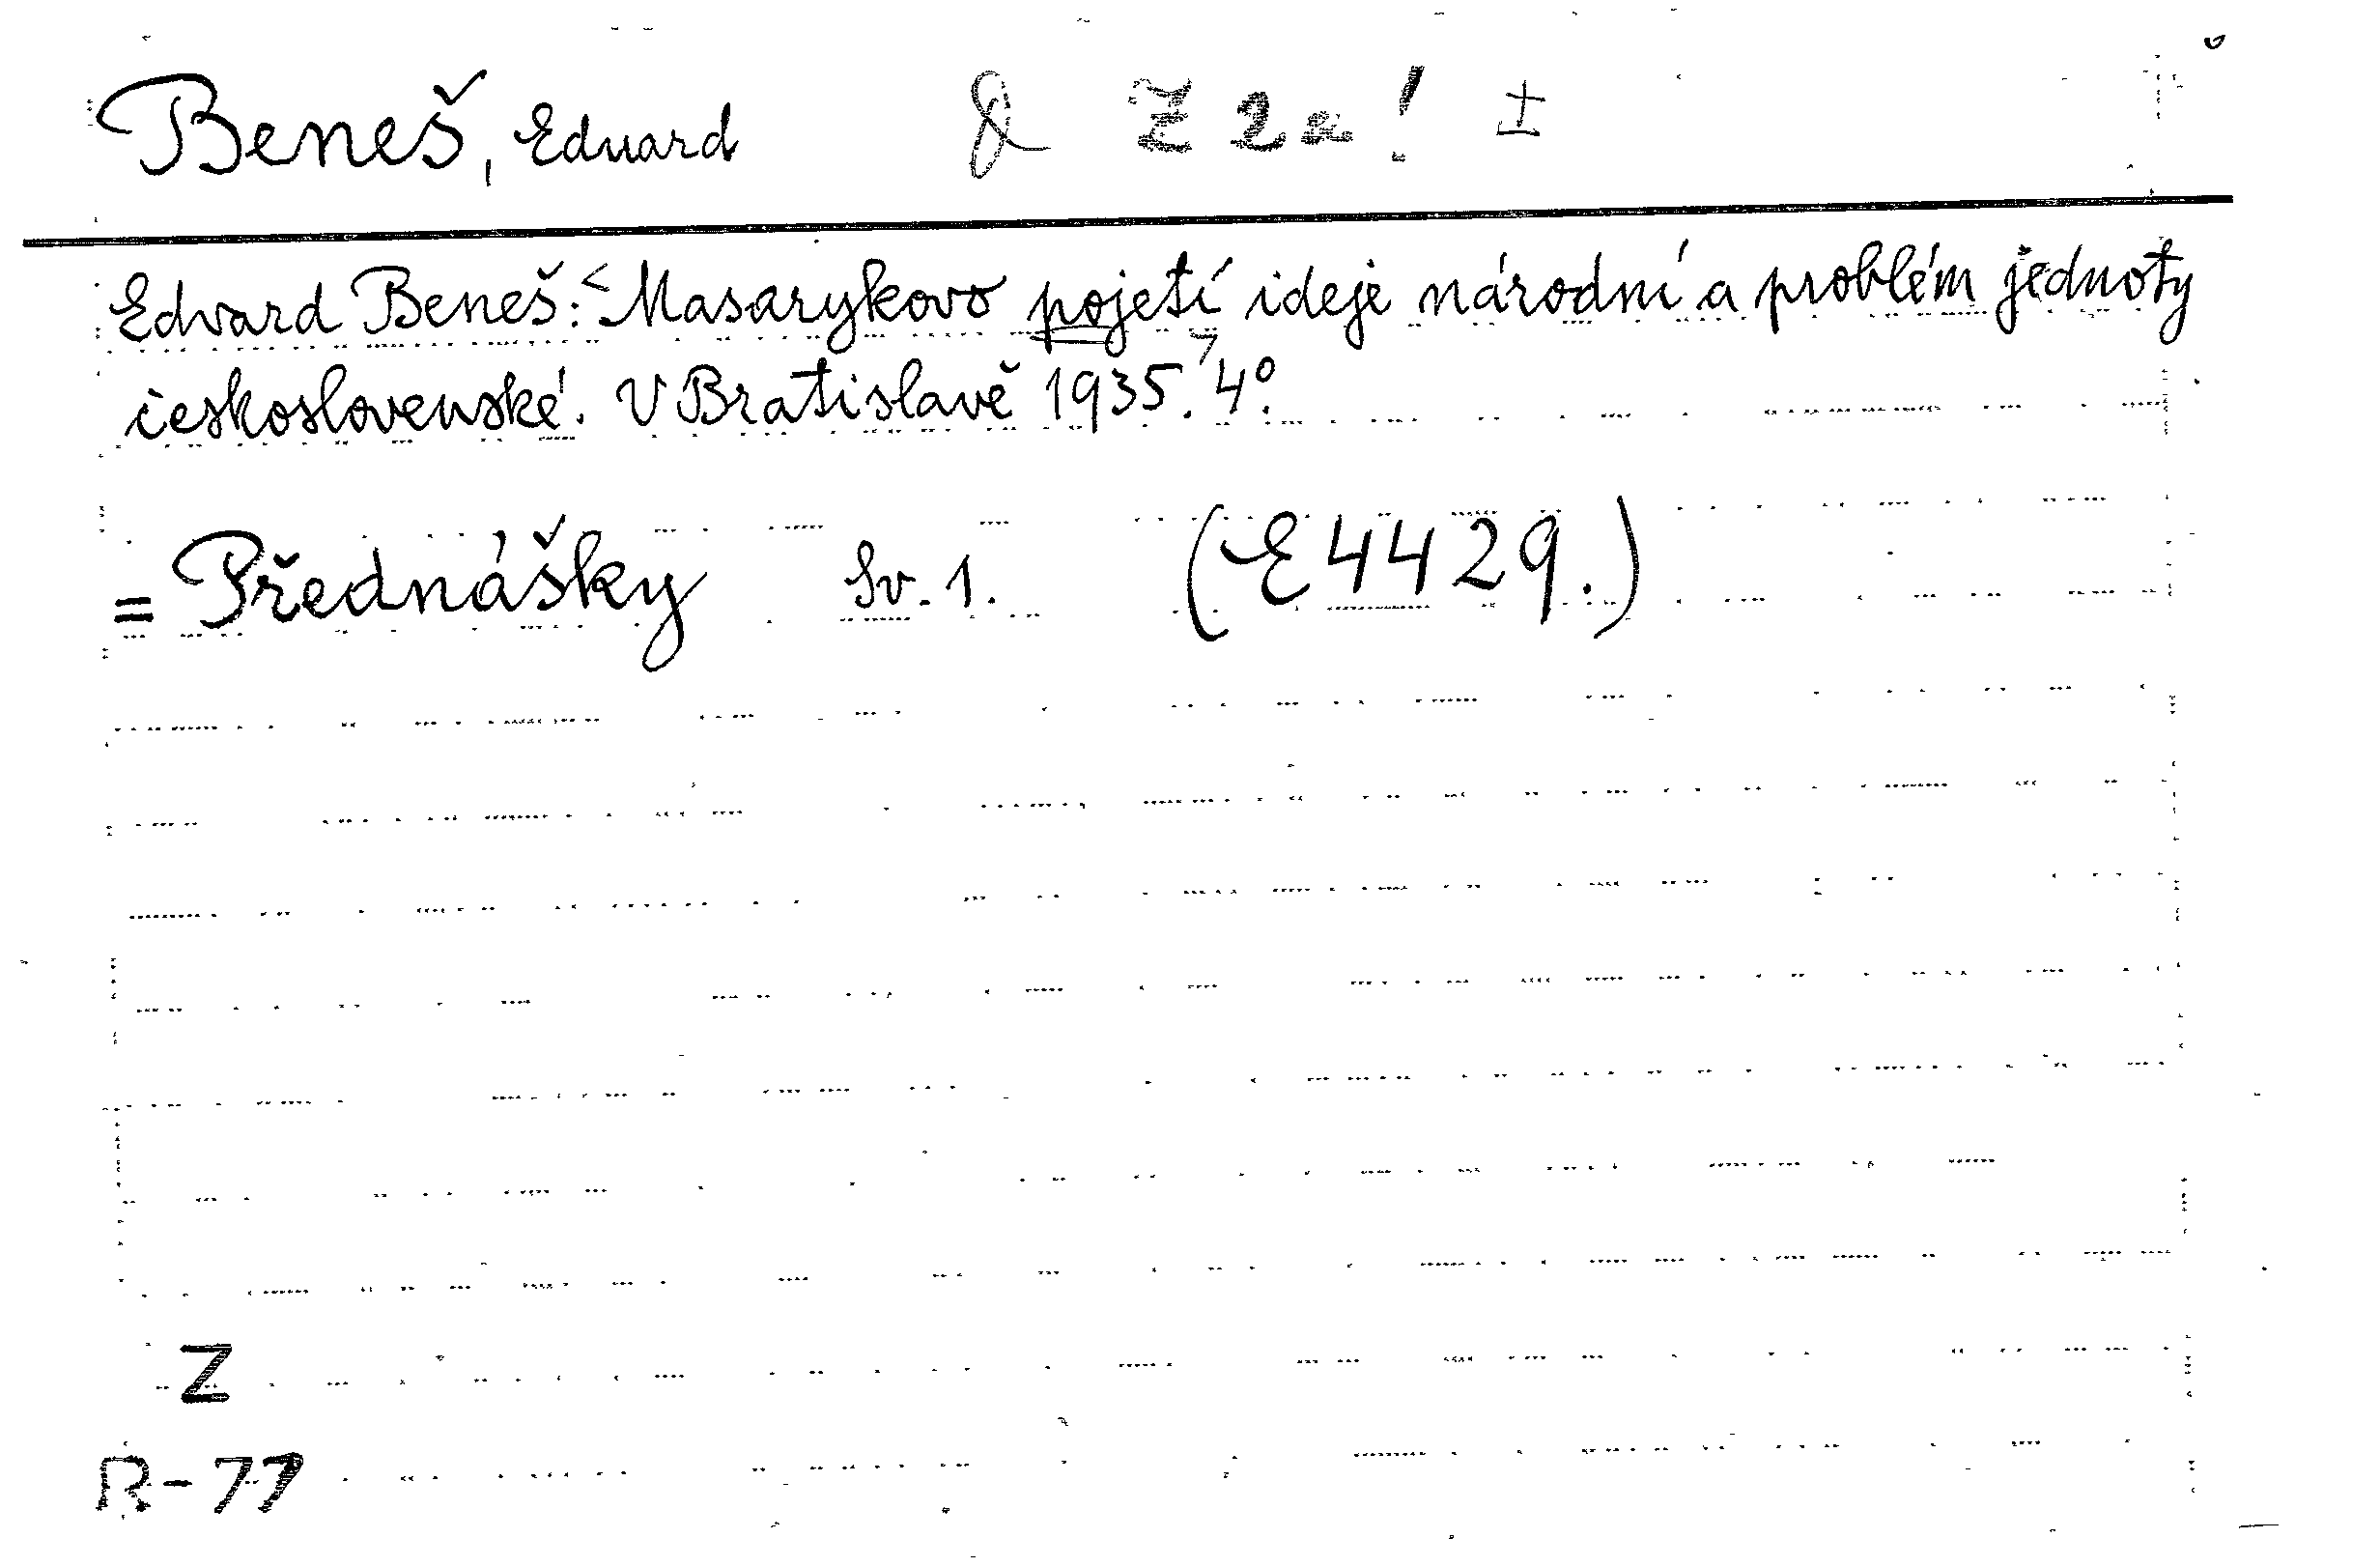 Beneš, Eduard Z 2a! ±
Edvard Beneš: <Masarykovo pojetí ideje národní a problém jednoty
československé. V Bratislavě 1935.> 4°.
= Přednášky Sv. 1. (E 4429.)
Z
R-77